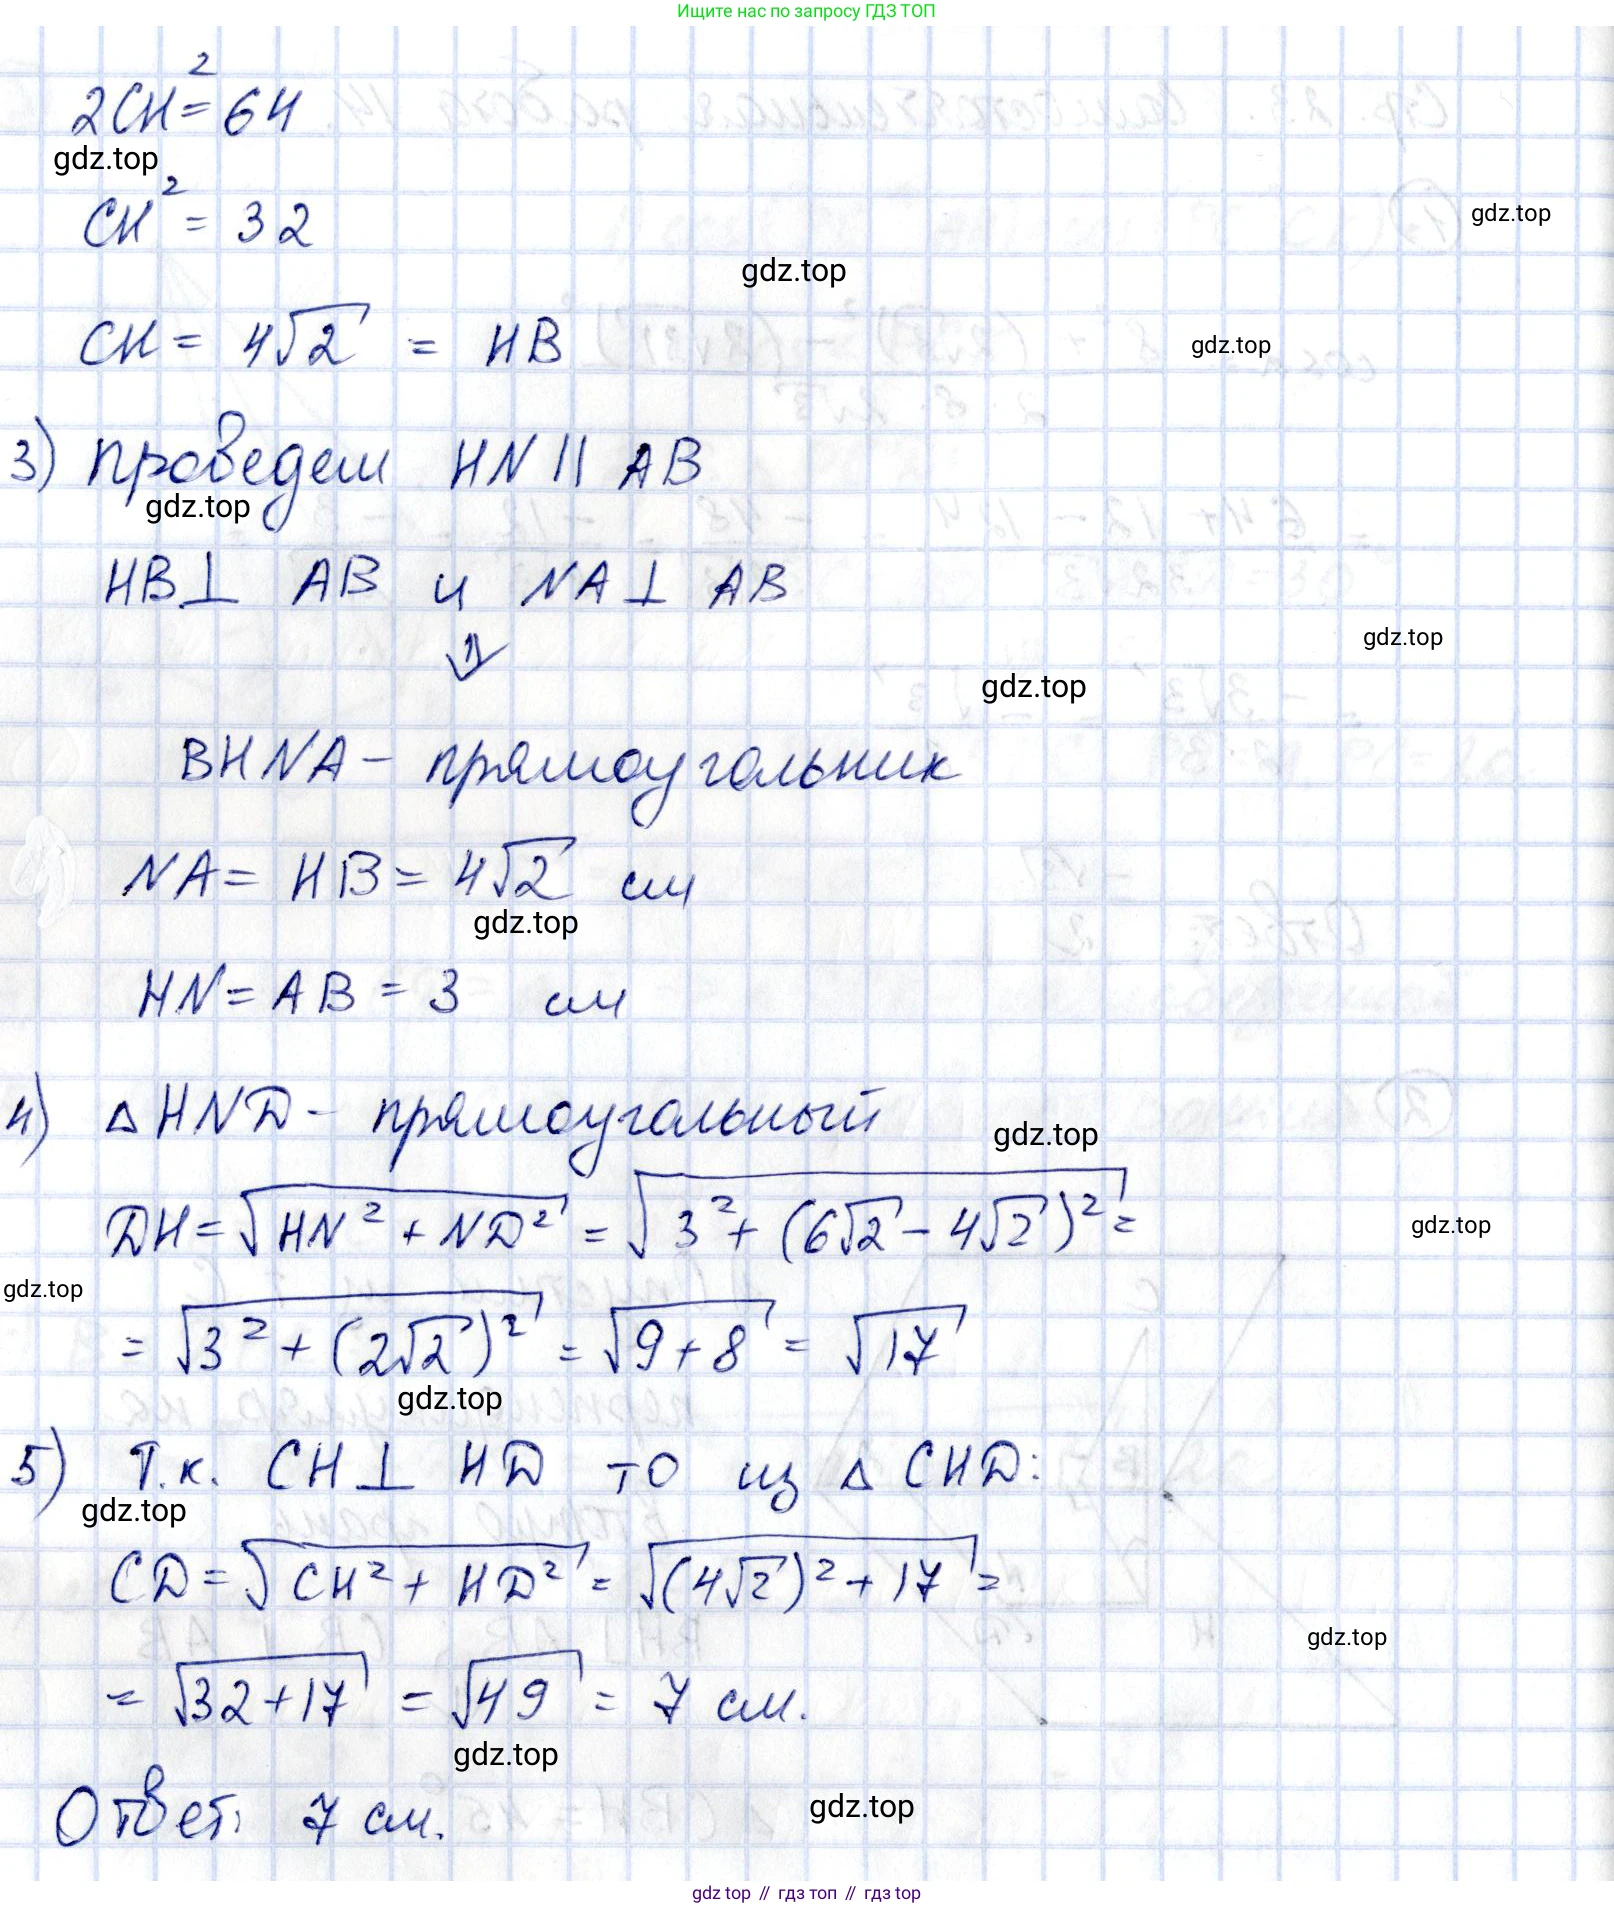 Ищите нас по запросу ГДЗ ТОП
2CH² = 64
gdz.top
CH² = 32
gdz.top
gdz.top
CH = 4√2 = HB
gdz.top
3) проведем HN || AB
gdz.top
HB ⊥ AB и NA ⊥ AB
gdz.top
⇓
gdz.top
BHNA – прямоугольник
NA = HB = 4√2 см
gdz.top
HN = AB = 3 см
4) △HND – прямоугольный
gdz.top
DH = √(HN² + ND²) = √(3² + (6√2 – 4√2)²) =
gdz.top
gdz.top
= √(3² + (2√2)²) = √(9 + 8) = √17
gdz.top
5) Т.к. CH ⊥ HD то из △CHD:
gdz.top
CD = √(CH² + HD²) = √((4√2)² + 17) =
gdz.top
= √(32 + 17) = √49 = 7 см.
gdz.top
Ответ: 7 см.
gdz.top
gdz top // гдз топ // гдз top